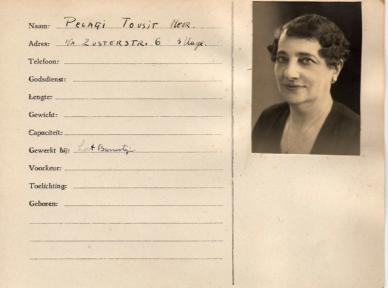 Naam: PELAGI TOUSIT MEVR.
Adres: V/A ZUSTERSTR. 6 's Hage.
Telefoon:
Godsdienst:
Lengte:
Gewicht:
Capaciteit:
Gewerkt bij:
Voorkeur:
Toelichting:
Geboren: